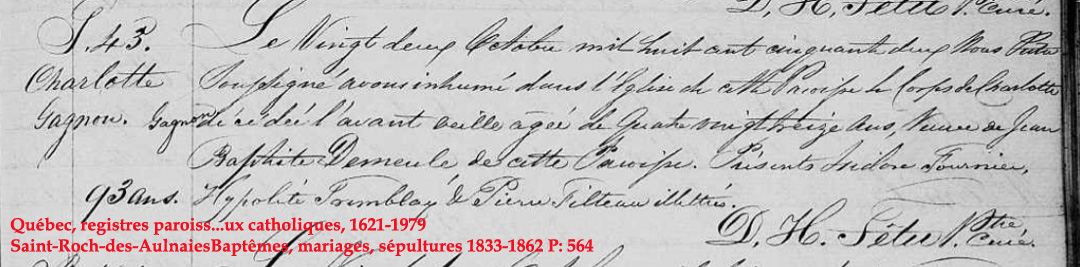 D. H. Têtu Ptre Curé.
S. 43.
Charlotte
Gagnon.
93 ans.
Le Vingt deux Octobre mil huit cent cinquante deux Nous Prêtre
soussigné avons inhumé dans l'Eglise de cette Paroisse le Corps de Charlotte
Gagnon décédée l'avant veille agée de Quatre vingt treize ans, Veuve de Jean
Baptiste Demeule de cette Paroisse. Présents Isidore Fournier,
Hypolite Tremblay & Pierre Filteau illettrés.
D. H. Têtu Ptre Curé.
Québec, registres paroiss...ux catholiques, 1621-1979
Saint-Roch-des-AulnaiesBaptêmes, mariages, sépultures 1833-1862 P: 564